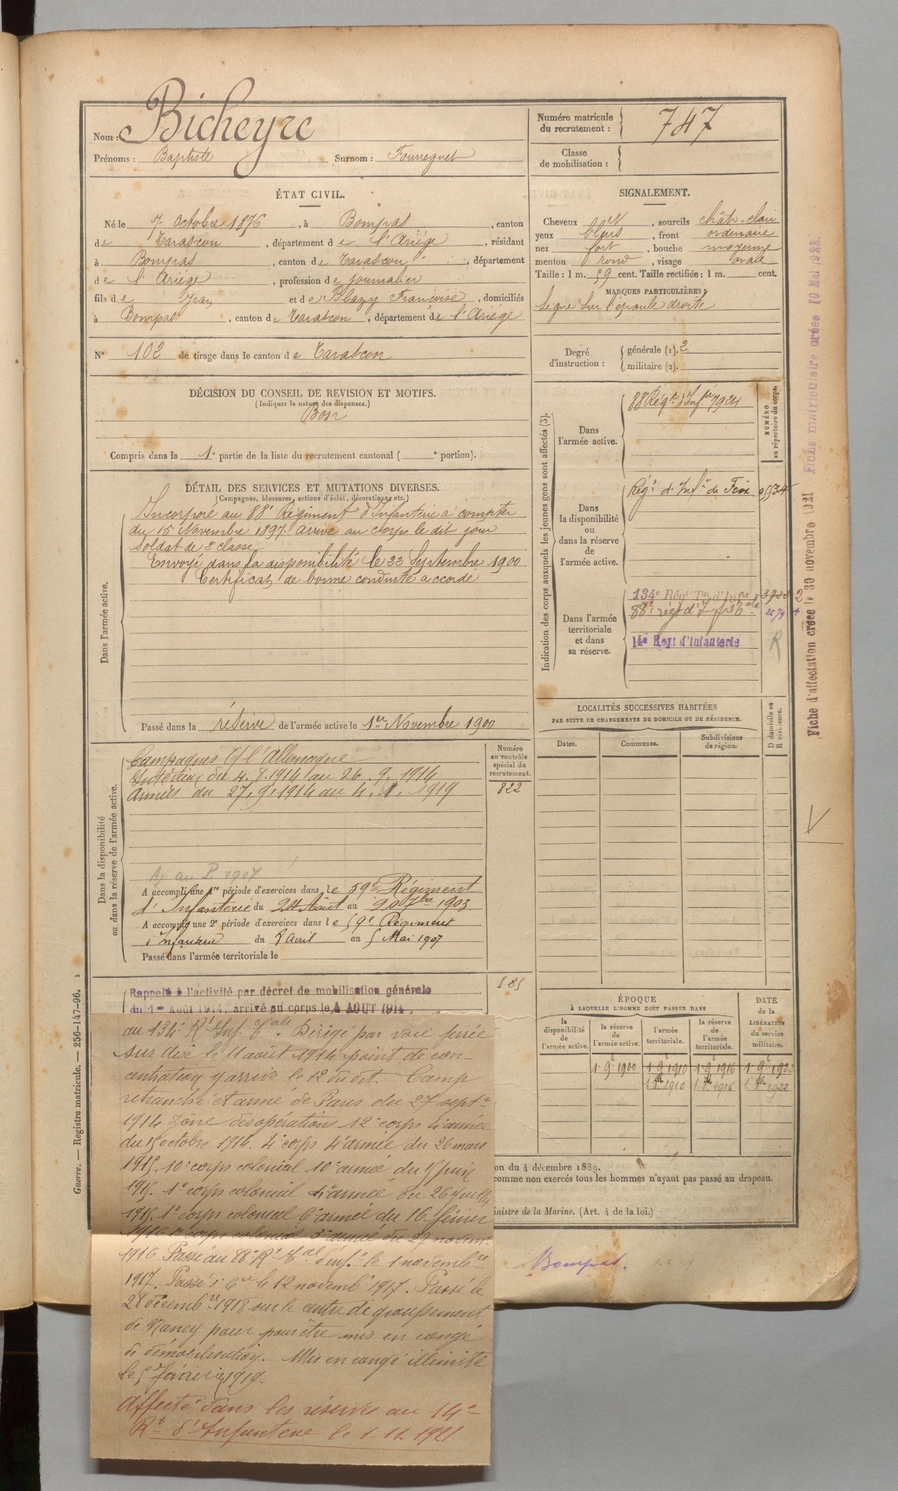 Nom : Bicheyre
Prénoms : Baptiste Surnom : Fourregnet
Numéro matricule du recrutement : 747
Classe de mobilisation :
ÉTAT CIVIL.
Né le 7 Octobre 1876, à Bompas, canton
de Tarascon, département de l'Ariège, résidant
à Bompas, canton de Tarascon, département
de l'Ariège, profession de journalier
fils de Jean et de Blazy Françoise, domiciliés
à Bompas, canton de Tarascon, département de l'Ariège
N° 102 de tirage dans le canton de Tarascon
SIGNALEMENT.
Cheveux , sourcils chât. clair
yeux bleus, front ordinaire
nez fort, bouche moyenne
menton rond, visage ovale
Taille : 1 m. 59 cent. Taille rectifiée : 1 m. cent.
MARQUES PARTICULIÈRES :
signe sur l'épaule droite
Degré d'instruction : générale (1). 2
militaire (2).
DÉCISION DU CONSEIL DE REVISION ET MOTIFS.
(Indiquer la nature des dispenses.)
Bon
Compris dans la 1e partie de la liste du recrutement cantonal ( e portion).
DÉTAIL DES SERVICES ET MUTATIONS DIVERSES.
(Campagnes, blessures, actions d'éclat, décorations, etc.)
Dans l'armée active.
Incorporé au 88e Régiment d'Infanterie à compter
du 15 Novembre 1897 arrivé au Corps le dit jour
Soldat de 2e classe
Envoyé dans la disponibilité le 22 Septembre 1900
Certificat de bonne conduite accordé
Passé dans la réserve de l'armée active le 1er Novembre 1900
Indication des corps auxquels les jeunes gens sont affectés (3).
NUMÉRO au répertoire du corps.
Dans l'armée active.
88 Régt d'Infie 7924
Dans la disponibilité ou dans la réserve de l'armée active.
Régt d'Infie de Foix
Dans l'armée territoriale et dans sa réserve.
134e Régt Tal d'Infie
88e régt d'I
14e Regt d'Infanterie
R
LOCALITÉS SUCCESSIVES HABITÉES
PAR SUITE DE CHANGEMENTS DE DOMICILE OU DE RÉSIDENCE.
Dates. Communes. Subdivisions de région. D domicile ou R résidence.
Dans la disponibilité ou dans la réserve de l'armée active.
Numéro au contrôle spécial du recrutement.
822
Campagnes C/ l'Allemagne
Intérieur du 4.8.1914 au 26.9.1914
Armées du 27.9.1914 au 1919
1907
A accompli une 1re période d'exercices dans le 59e Régiment
d'Infanterie du 24 Août au 20 7bre 1903
A accompli une 2e période d'exercices dans le 59e Régiment
d'Infanterie du 8 Avril au 5 Mai 1907
Passé dans l'armée territoriale le
585
Rappelé à l'activité par décret de mobilisation générale
du 1er Août 1914, arrivé au corps le 4 AOUT 1914
au 134e Rt Inf. Tale. Dirigé par voie ferrée
sur le 11 août 1914 point de con-
centration y arrive le 12 du dit. Camp
retranché et armée de Paris du 27 septbre
1914 Zone des opérations 12e corps 4e armée
du 15 octobre 1914. 4e corps 4e armée du 26 mars
1915. 10e corps colonial 10e armée du juin
1915. 1e corps colonial 4e armée du 26 juillet
1915. 1e corps colonial 6e armée du 16 février
1916 corps colonial 3e armée du 29 novem
1916 Passé au 88e Rt Tal d'Infie le 1 novembre
1917. Passé le 12 novembre 1917. Passé le
28 décembre 1918 sur le centre de groupement
de Nancy pour pour être mis en congé
de démobilisation. Mis en congé illimité
le 5 février 1919.
Affecté dans les réserves au 14e
Rt d'Infanterie le 1.11.1921
ÉPOQUE
à LAQUELLE L'HOMME DOIT PASSER DANS
la disponibilité de l'armée active. la réserve de l'armée active. l'armée territoriale. la réserve de l'armée territoriale.
DATE de la LIBÉRATION du service militaire.
1 9e 1900 1 9e 1910 1 9e 1916 1 9e 1922
1910 1916 1922
on du 4 décembre 1889.
comme non exercés tous les hommes n'ayant pas passé au drapeau.
inistre de la Marine. (Art. 4 de la loi.)
Bompas.
Guerre. — Registre matricule. — 256-147-96.
Fiche d'affectation créée le 30 novembre 1921
Fiche matriculaire créée 10 Mai 1933.